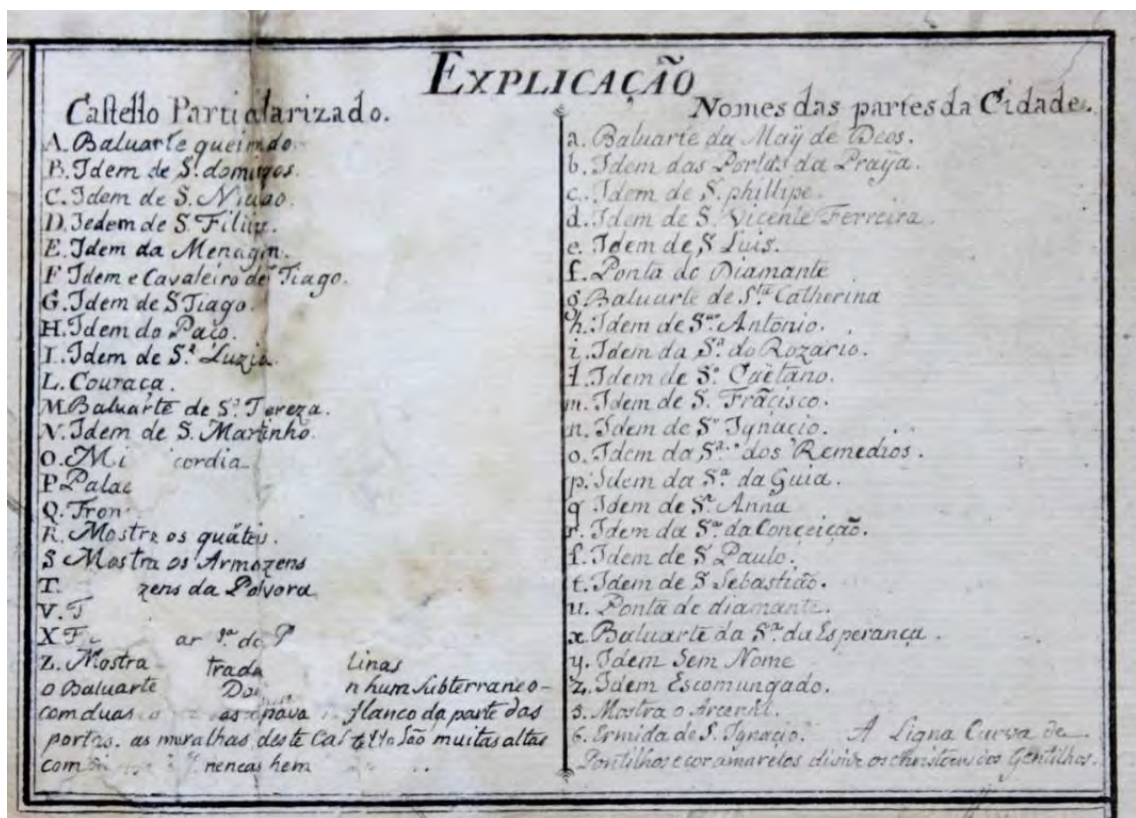 EXPLICAÇÃO
Castello Particularizado.
A. Baluarte queimado
B. Idem de S. domigos.
C. Idem de S.
D. Iedem de S.
E. Idem da
F Idem e Cavaleiro de Tiago.
G. Idem de S Tiago.
H. Idem do Paço.
I. Idem de Sª. Luzia.
L. Couraça.
M. Baluarte de Sª. Tereza.
N. Idem de S. Martinho.
O. Mi cordia
P Palac
Q. Fron
R. Mostra os quáteis.
S Mostra os Armazens
T. zens da Polvora
V.
X ar do
Z. Mostra trada linas
o Baluarte n hum subterraneo-
com duas flanco da parte das
portas. as muralhas deste Castello são muitas altas
com hem
Nomes das partes da Cidade.
a. Baluarte da Maÿ de Deos.
b. Idem das Portas da Praÿa.
c. Idem de S. phillipe.
d. Idem de S. Vicente Ferreira.
e. Idem de S Luis.
f. Ponta do Diamante
g. Baluarte de Stª Catherina
h. Idem de Sto Antonio.
i. Idem da Sª. do Rozario.
l. Idem de S. Caëtano.
m. Idem de S. Frãcisco.
n. Idem de S Ignacio.
o. Idem da Sª. dos Remedios.
p. Idem da Sª. da Guia.
q Idem de Sª. Anna
r. Idem da Sª. da Conçeição.
ſ. Idem de S Paulo.
t. Idem de S Sebastião.
u. Ponta de diamante.
x. Baluarte da Sª. da Esperança.
y. Idem Sem Nome
z. Idem Escomungado.
5. Mostra o Arcenal.
6. Ermida de S. Ignacio. A Ligna Curva de
Pontilhos e cor amarelos divide os christeuns dos Gentilhos.